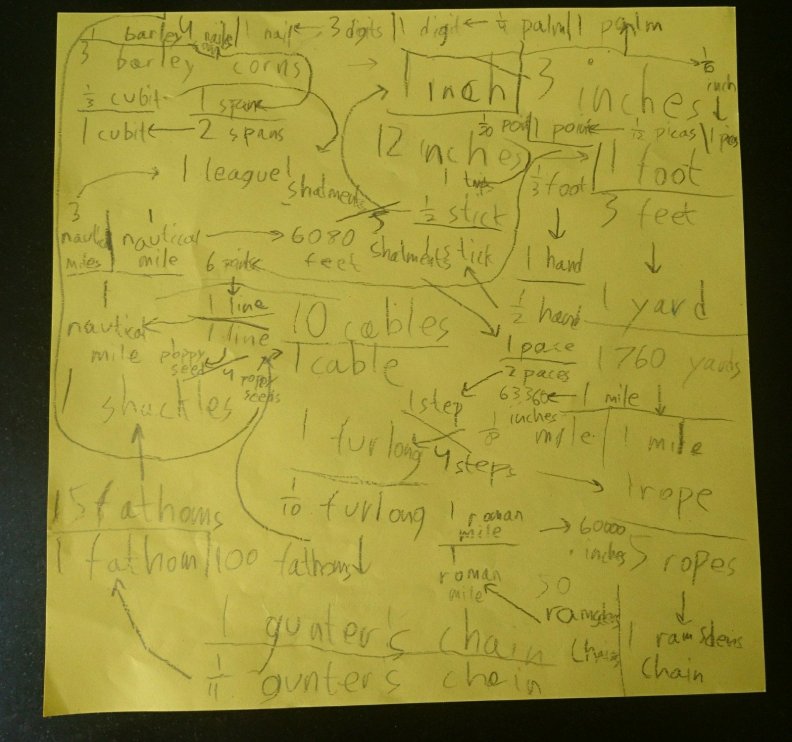 1 barley 4 nails 1 nail ← 3 digits 1 digit ← 1/4 palm 1 palm
3 barley corns → 1 inch 3 inches → 1/6 inch
1/3 cubit 1 span
1 cubit ← 2 spans 12 inches 1 point ← 1/12 picas
1 league 1/3 foot 1 foot
shatments 1/2 stick 3 feet
3 nautical miles 1 nautical mile → 6080 feet
3 shatments 1 stick 1 hand
1/2 hand 1 yard
6 1 line
1 nautical mile 1 line 10 cables
poppy seed 4 poppy seeds 1 cable
1 pace 1760 yards
2 paces
63360 inches ← 1 mile
1 shackles 1 step
1 furlong 1/8 mile 1 mile
4 steps → 1 rope
15 fathoms 1/10 furlong 1 roman mile → 60000 inches
1 fathom 100 fathoms 1 roman mile 5 ropes
50 ramsdens chains
1 gunter's chain 1 ramsdens chain
1/11 gunter's chain